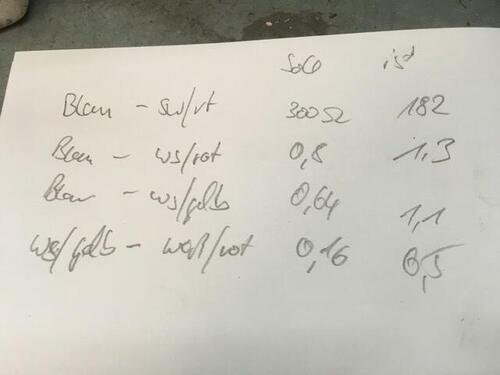 Soll ist
Blau - sw/rt 300Ω 182
Blau - ws/rot 0,8 1,3
Blau - ws/gelb 0,64 1,1
ws/gelb - weiß/rot 0,16 0,5